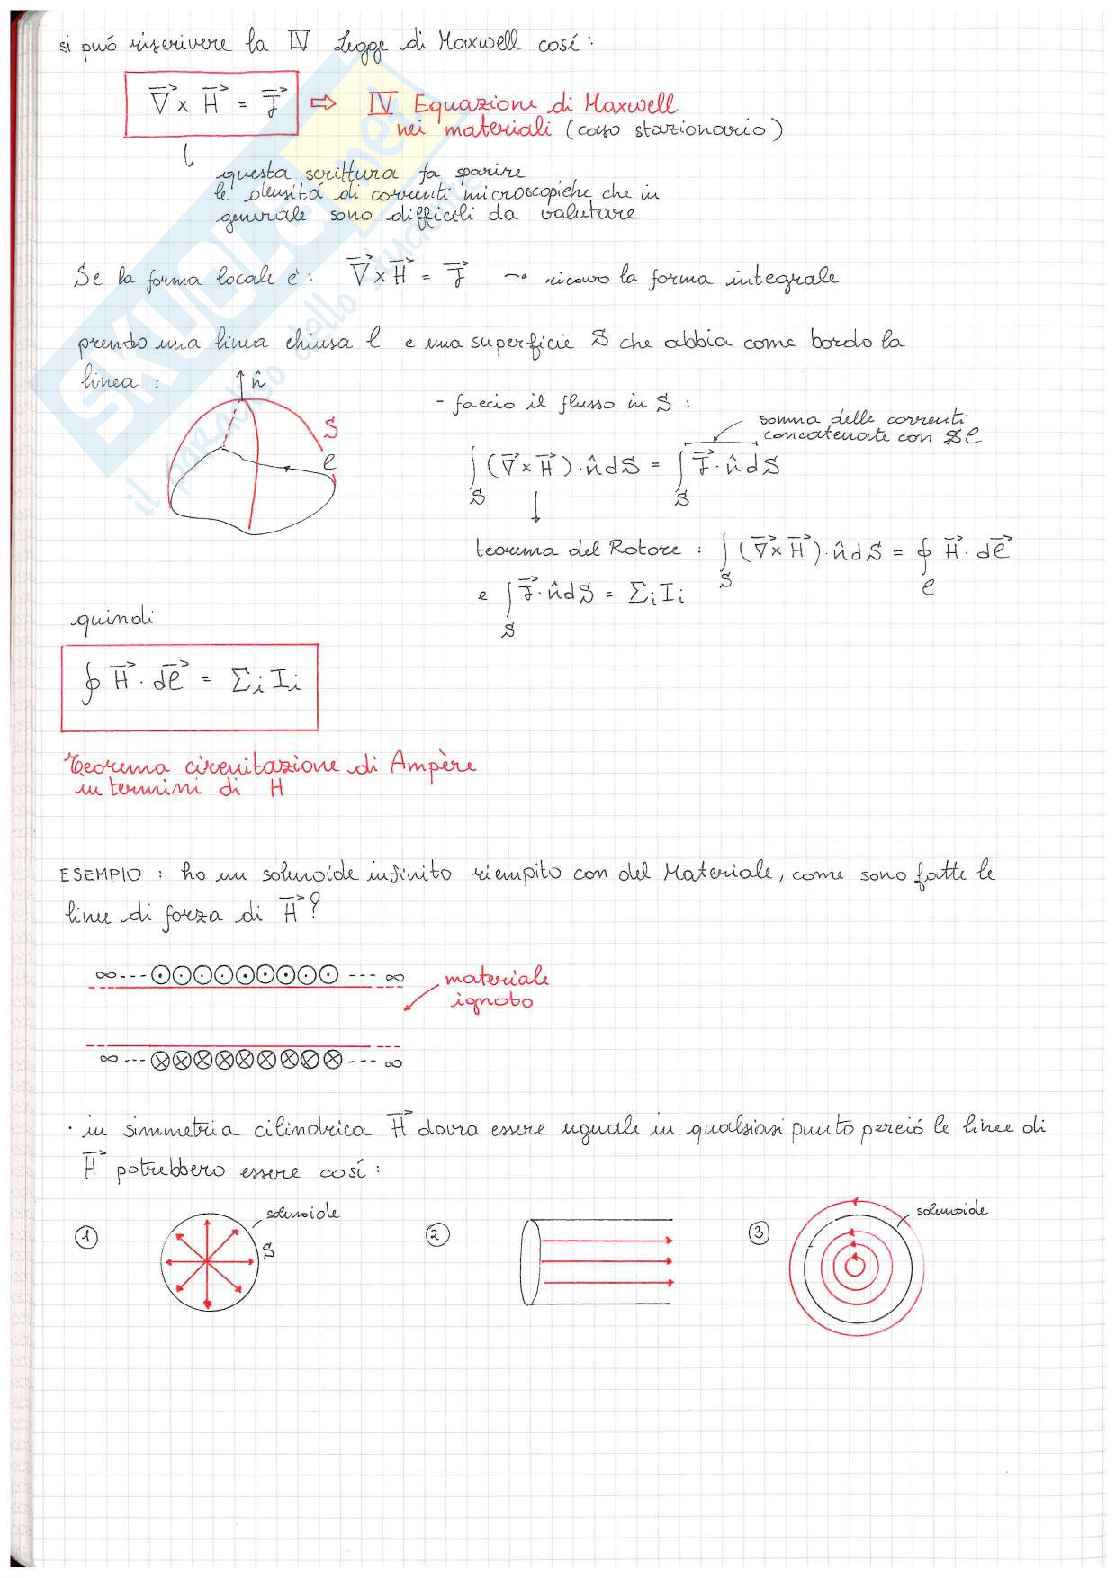 si può riscrivere la IV Legge di Maxwell così:
∇⃗ x H⃗ = J⃗ ⇨ IV Equazione di Maxwell
nei materiali (caso stazionario)
questa scrittura fa sparire
le densità di correnti microscopiche che in
generale sono difficili da valutare
Se la forma locale è: ∇⃗ x H⃗ = J⃗ → ricavo la forma integrale
prendo una linea chiusa l e una superficie S che abbia come bordo la
linea:
n̂
S
l
- faccio il flusso in S:
somma delle correnti
concatenate con l
∫S (∇⃗ x H⃗)·n̂dS = ∫S J⃗·n̂dS
teorema del Rotore: ∫S (∇⃗xH⃗)·n̂dS = ∮l H⃗·dl⃗
e ∫S J⃗·n̂dS = ΣiIi
quindi
∮ H⃗·dl⃗ = ΣiIi
Teorema circuitazione di Ampère
in termini di H
ESEMPIO: ho un solenoide infinito riempito con del Materiale, come sono fatte le
linee di forza di H⃗?
∞---⊙⊙⊙⊙⊙⊙⊙⊙⊙---∞
materiale
ignoto
∞---⊗⊗⊗⊗⊗⊗⊗⊗⊗---∞
· in simmetria cilindrica H⃗ dovrà essere uguale in qualsiasi punto perciò le linee di
H⃗ potrebbero essere così:
① solenoide
S
②
③ solenoide
SKUOLA.net
il paradiso dello studente